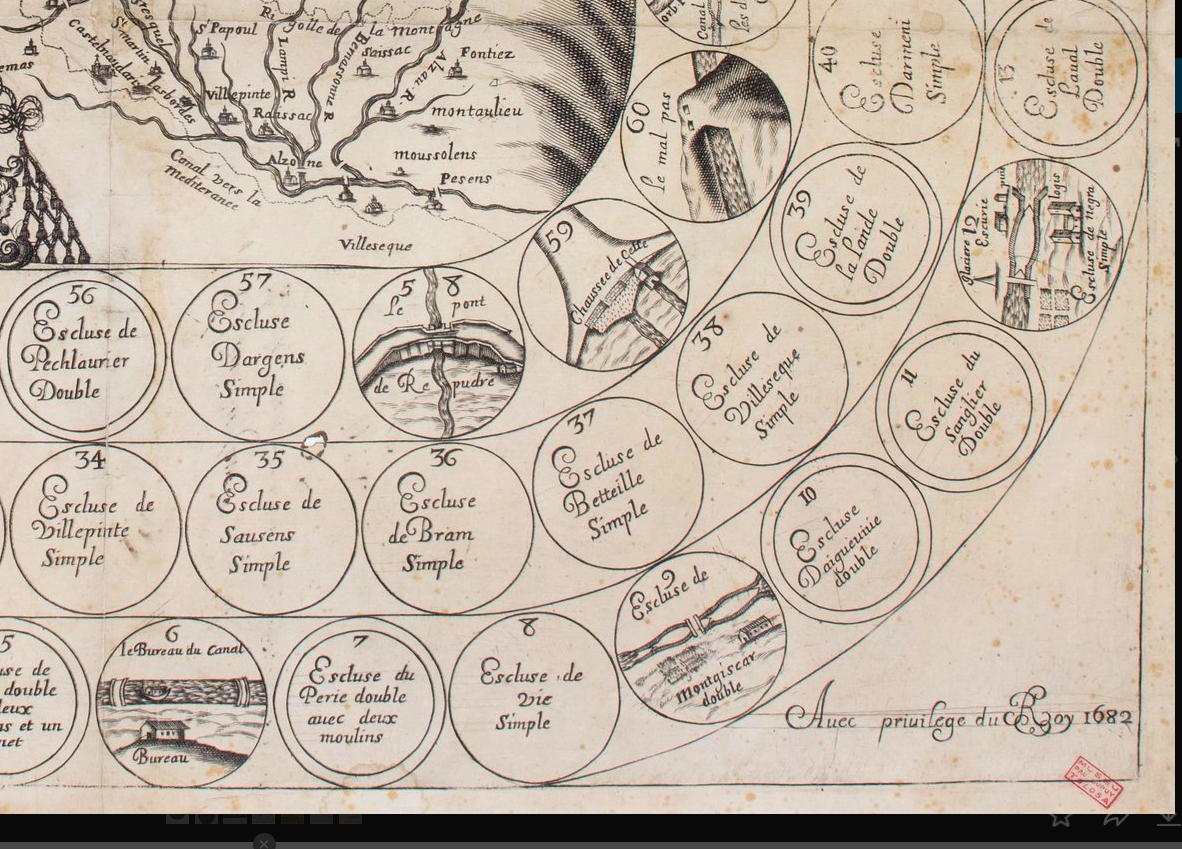 St Papoul
R. Golle de la Montagne
Saissac
Pontiez
Castelnaudari
St martin
Lampi R
Bernassonne R
Alzau R.
Villepinte
Raissac
montaulieu
Alzonne
moussolens
Pesens
Canal vers la
Mediteranee
Villeseque
60
le mal pas
40
Escluse
Darmeni
Simple
13
Escluse de
Laual
Double
59
Chaussee de Cesse
39
Escluse de
la Lande
Double
12
Glaciere
Escurie
logis
Escluse de Negra
Simple
56
Escluse de
Pechlaurier
Double
57
Escluse
Dargens
Simple
58
le pont
de Re pudre
38
Escluse de
Villeseque
Simple
11
Escluse du
Sanglier
Double
34
Escluse de
Villepinte
Simple
35
Escluse de
Sausens
Simple
36
Escluse
de Bram
Simple
37
Escluse de
Betteille
Simple
10
Escluse
Daigueuiue
double
5
use de
double
deux
ns et un
net
6
le Bureau du Canal
Bureau
7
Escluse du
Perie double
auec deux
moulins
8
Escluse de
Vic
Simple
9
Escluse de
Montgiscar
double
Auec priuilege du Roy 1682